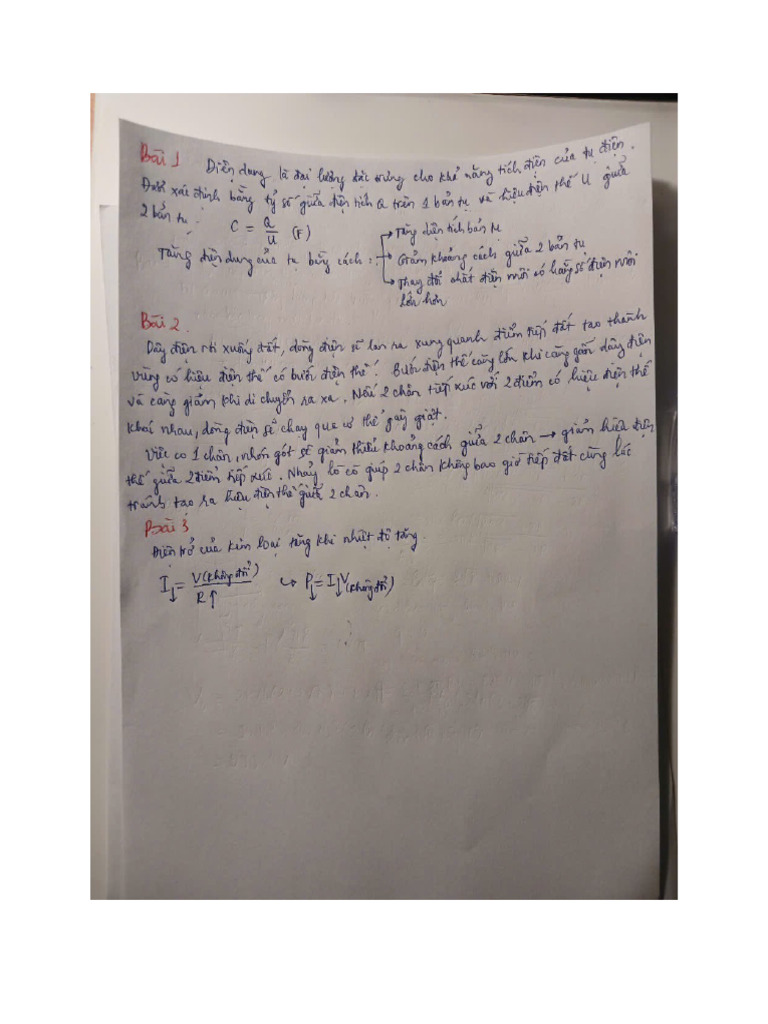 Bài 1 Điện dung là đại lượng đặc trưng cho khả năng tích điện của tụ điện.
Được xác định bằng tỷ số giữa điện tích Q trên 1 bản tụ và hiệu điện thế U giữa
2 bản tụ: C = Q/U (F)
Tăng điện dung của tụ bằng cách: → Tăng diện tích bản tụ
→ Giảm khoảng cách giữa 2 bản tụ
→ Thay đổi chất điện môi có hằng số điện môi
lớn hơn
Bài 2.
Dây điện rơi xuống đất, dòng điện sẽ lan ra xung quanh điểm tiếp đất tạo thành
vùng có hiệu điện thế có bước điện thế. Bước điện thế càng lớn khi càng gần dây điện
và càng giảm khi di chuyển ra xa. Nếu 2 chân tiếp xúc với 2 điểm có hiệu điện thế
khác nhau, dòng điện sẽ chạy qua cơ thể gây giật.
Việc co 1 chân, nhón gót sẽ giảm thiểu khoảng cách giữa 2 chân → giảm hiệu điện
thế giữa 2 điểm tiếp xúc. Nhảy lò cò giúp 2 chân không bao giờ tiếp đất cùng lúc
tránh tạo ra hiệu điện thế giữa 2 chân.
Bài 3
Điện trở của kim loại tăng khi nhiệt độ tăng.
I↓ = V(không đổi)/R↑ ↪ P↓ = I↓V(không đổi)